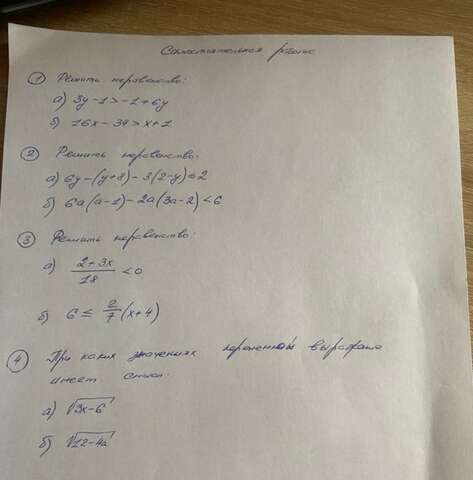 Самостоятельная работа
① Решить неравенство:
а) 3y-1>-1+6y
б) 16x-34>x+1
② Решить неравенство:
а) 6y-(y+8)-3(2-y)≤2
б) 6a(a-1)-2a(3a-2)<6
③ Решить неравенство:
а) \frac{2+3x}{18}<0
б) 6≤\frac{2}{7}(x+4)
④ При каких значениях переменной выражение
имеет смысл:
а) √3x-6
б) √12-4a